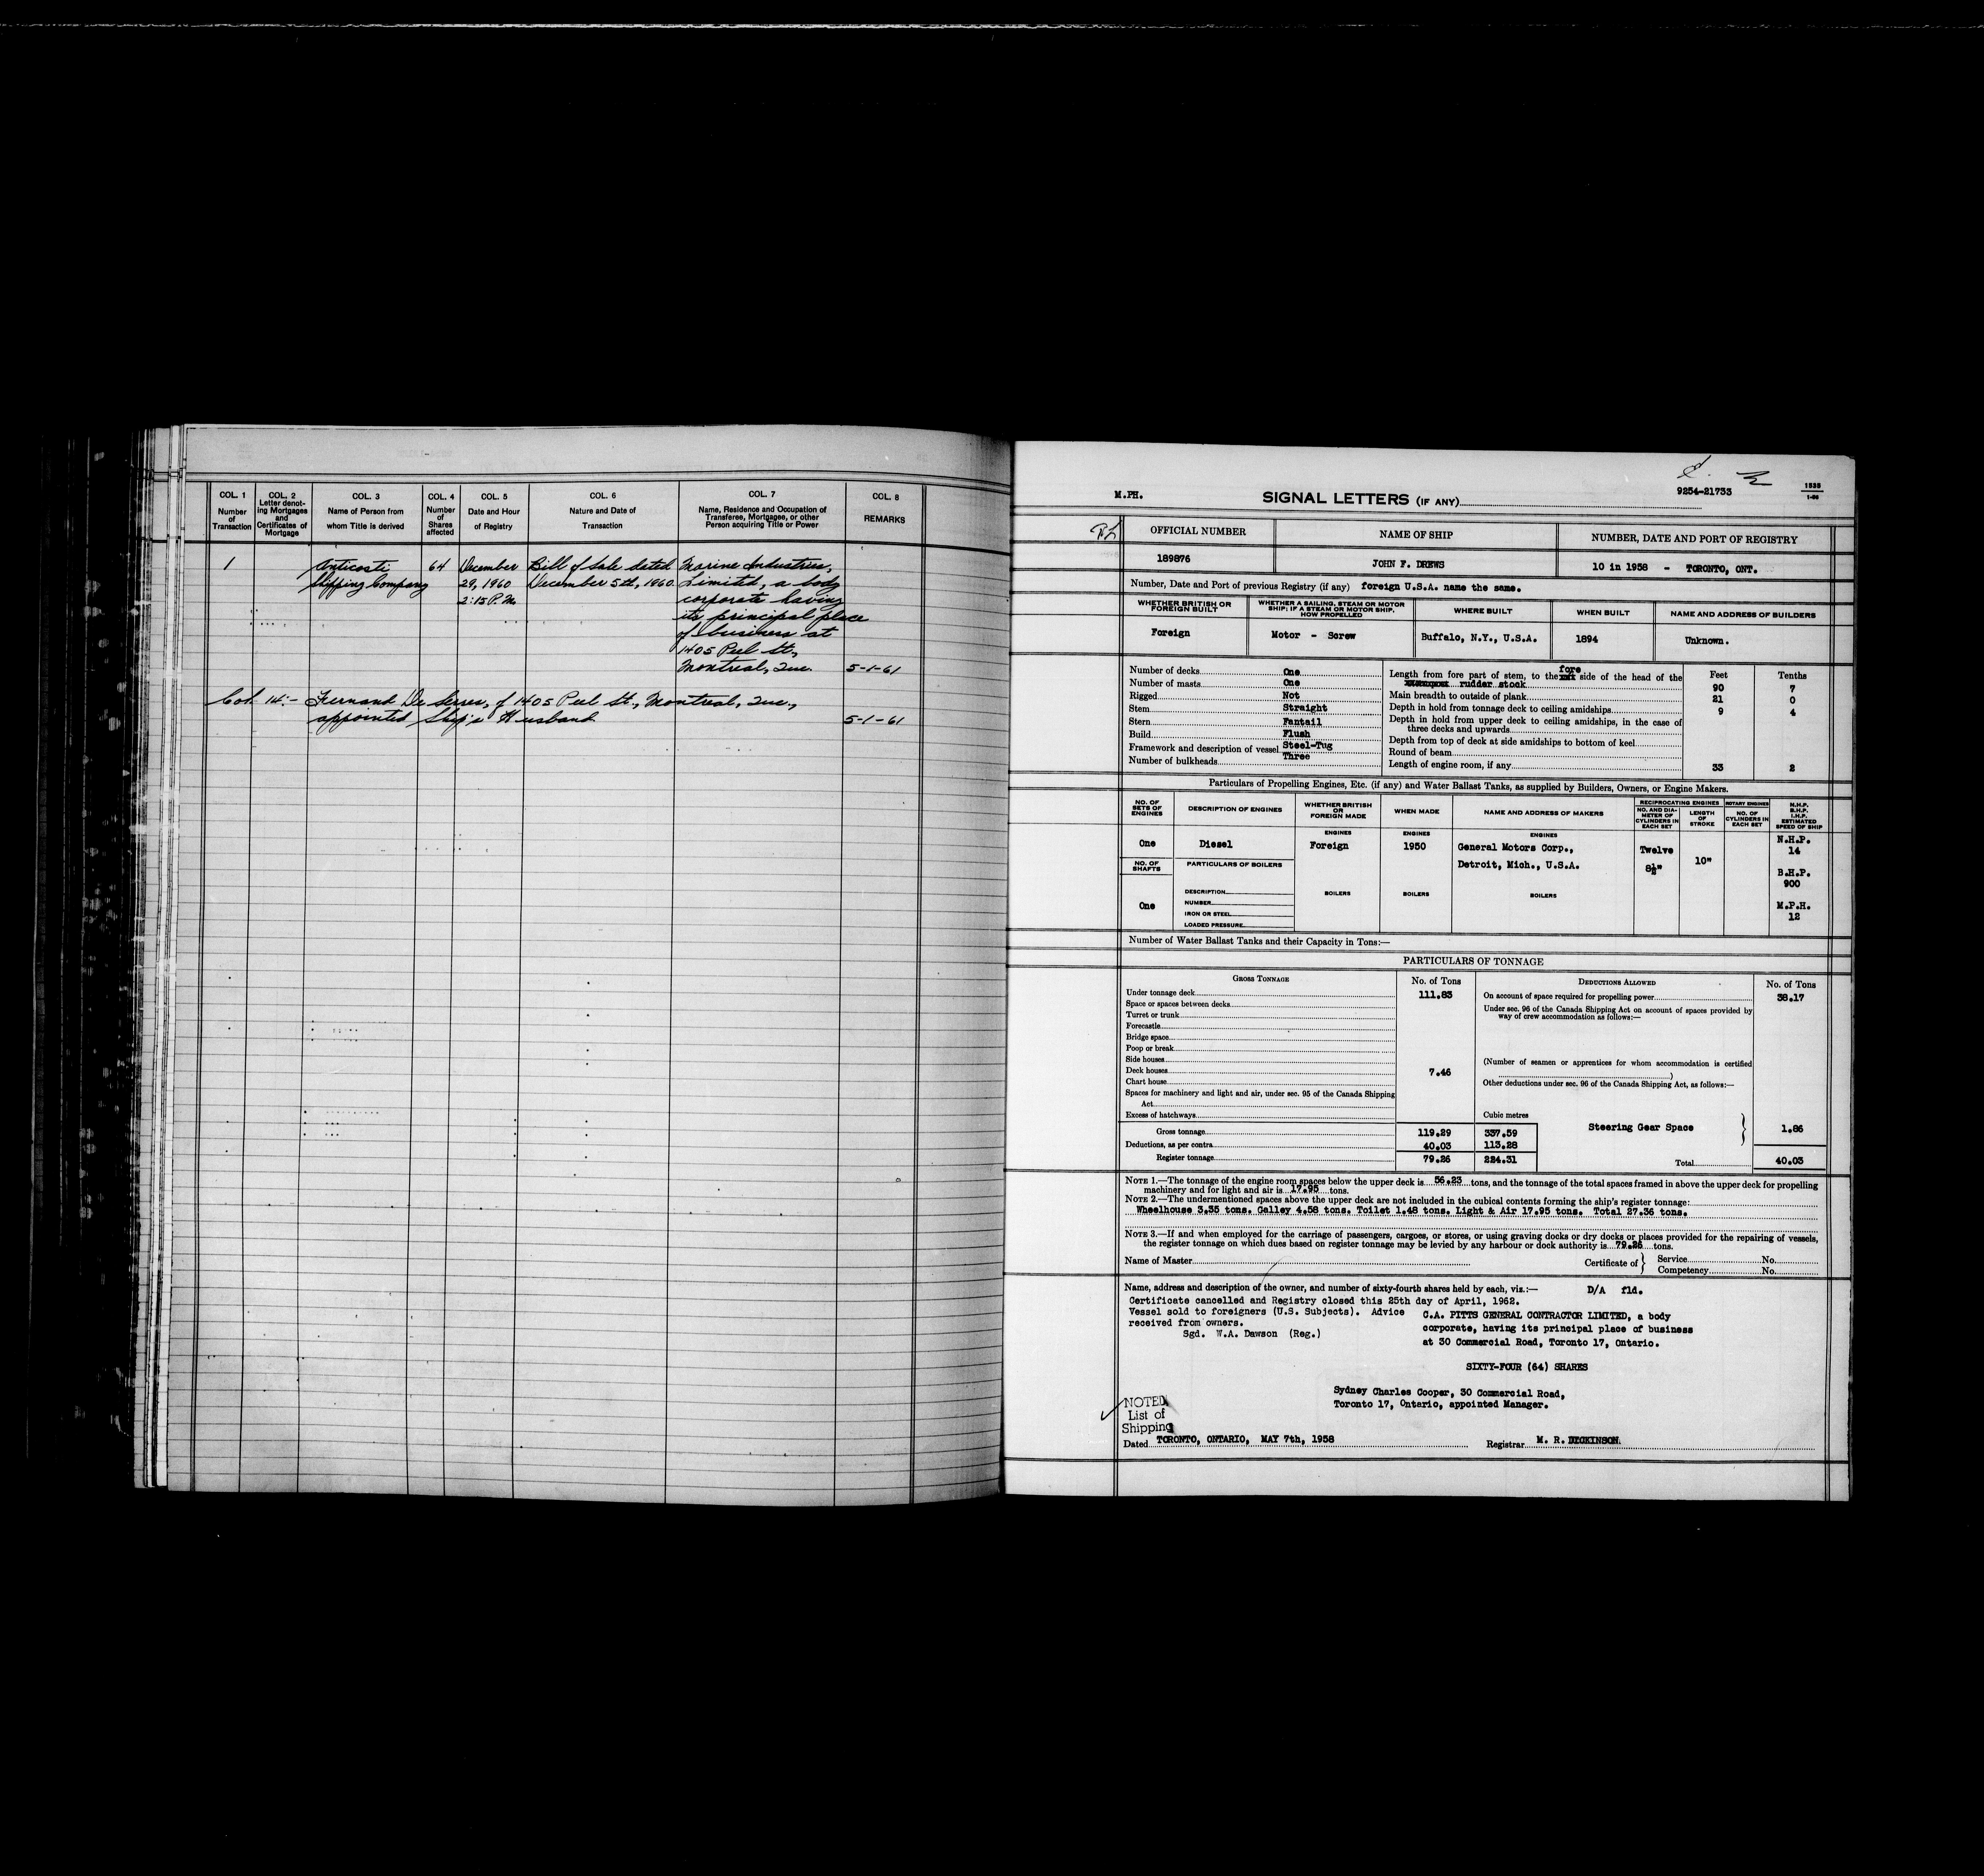 COL. 1 Number of Transaction
COL. 2 Letter denoting Mortgages and Certificates of Mortgage
COL. 3 Name of Person from whom Title is derived
COL. 4 Number of Shares affected
COL. 5 Date and Hour of Registry
COL. 6 Nature and Date of Transaction
COL. 7 Name, Residence and Occupation of Transferee, Mortgagee, or other Person acquiring Title or Power
COL. 8 REMARKS
1 Anticosti 64 December Bill of Sale dated Marine Industries,
Shipping Company 29, 1960 December 5th, 1960. Limited, a body
2:15 P.M. corporate having
its principal place
of business at
1405 Peel St.,
Montreal, Que. 5-1-61
Col. 14:- Fernand De Serres, of 1405 Peel St., Montreal, Que.,
appointed Ship's Husband 5-1-61
M.PH. SIGNAL LETTERS (IF ANY) 9254-21733 1535
1-56
OFFICIAL NUMBER NAME OF SHIP NUMBER, DATE AND PORT OF REGISTRY
189876 JOHN F. DREWS 10 in 1958 - TORONTO, ONT.
Number, Date and Port of previous Registry (if any) foreign U.S.A. name the same.
WHETHER BRITISH OR FOREIGN BUILT
WHETHER A SAILING, STEAM OR MOTOR SHIP; IF A STEAM OR MOTOR SHIP, HOW PROPELLED
WHERE BUILT WHEN BUILT NAME AND ADDRESS OF BUILDERS
Foreign Motor - Screw Buffalo, N.Y., U.S.A. 1894 Unknown.
Number of decks One
Number of masts One
Rigged Not
Stem Straight
Stern Fantail
Build Flush
Framework and description of vessel Steel-Tug
Number of bulkheads Three
Feet Tenths
Length from fore part of stem, to the fore side of the head of the
rudder stock 90 7
Main breadth to outside of plank 21 0
Depth in hold from tonnage deck to ceiling amidships 9 4
Depth in hold from upper deck to ceiling amidships, in the case of
three decks and upwards
Depth from top of deck at side amidships to bottom of keel
Round of beam
Length of engine room, if any 33 2
Particulars of Propelling Engines, Etc. (if any) and Water Ballast Tanks, as supplied by Builders, Owners, or Engine Makers.
NO. OF SETS OF ENGINES
DESCRIPTION OF ENGINES
WHETHER BRITISH OR FOREIGN MADE
WHEN MADE
NAME AND ADDRESS OF MAKERS
RECIPROCATING ENGINES
NO. AND DIAMETER OF CYLINDERS IN EACH SET
LENGTH OF STROKE
ROTARY ENGINES
NO. OF CYLINDERS IN EACH SET
N.H.P. B.H.P. I.H.P. ESTIMATED SPEED OF SHIP
ENGINES ENGINES ENGINES
One Diesel Foreign 1950 General Motors Corp., Twelve N.H.P.
14
Detroit, Mich., U.S.A. 8½" 10"
NO. OF SHAFTS PARTICULARS OF BOILERS
B.H.P.
900
DESCRIPTION BOILERS BOILERS BOILERS
One NUMBER M.P.H.
IRON OR STEEL 12
LOADED PRESSURE
Number of Water Ballast Tanks and their Capacity in Tons:—
PARTICULARS OF TONNAGE
GROSS TONNAGE No. of Tons DEDUCTIONS ALLOWED No. of Tons
Under tonnage deck 111.83
Space or spaces between decks
Turret or trunk
Forecastle
Bridge space
Poop or break
Side houses
Deck houses 7.46
Chart house
Spaces for machinery and light and air, under sec. 95 of the Canada Shipping
Act
Excess of hatchways Cubic metres
Gross tonnage 119.29 337.59
Deductions, as per contra 40.03 113.28
Register tonnage 79.26 224.31
On account of space required for propelling power 38.17
Under sec. 96 of the Canada Shipping Act on account of spaces provided by
way of crew accommodation as follows:—
(Number of seamen or apprentices for whom accommodation is certified
)
Other deductions under sec. 96 of the Canada Shipping Act, as follows:—
Steering Gear Space 1.86
Total 40.03
NOTE 1.—The tonnage of the engine room spaces below the upper deck is 56.23 tons, and the tonnage of the total spaces framed in above the upper deck for propelling
machinery and for light and air is 17.95 tons.
NOTE 2.—The undermentioned spaces above the upper deck are not included in the cubical contents forming the ship's register tonnage:
Wheelhouse 3.35 tons. Galley 4.58 tons. Toilet 1.48 tons. Light & Air 17.95 tons. Total 27.36 tons.
NOTE 3.—If and when employed for the carriage of passengers, cargoes, or stores, or using graving docks or dry docks or places provided for the repairing of vessels,
the register tonnage on which dues based on register tonnage may be levied by any harbour or dock authority is 79.26 tons.
Name of Master Certificate of Service No.
Competency No.
Name, address and description of the owner, and number of sixty-fourth shares held by each, viz.:— D/A fld.
Certificate cancelled and Registry closed this 25th day of April, 1962.
Vessel sold to foreigners (U.S. Subjects). Advice
received from owners.
Sgd. W.A. Dawson (Reg.)
C.A. PITTS GENERAL CONTRACTOR LIMITED, a body
corporate, having its principal place of business
at 30 Commercial Road, Toronto 17, Ontario.
SIXTY-FOUR (64) SHARES
Sydney Charles Cooper, 30 Commercial Road,
Toronto 17, Ontario, appointed Manager.
NOTED
List of
Shipping
Dated TORONTO, ONTARIO, MAY 7th, 1958 Registrar M. R. DICKINSON.